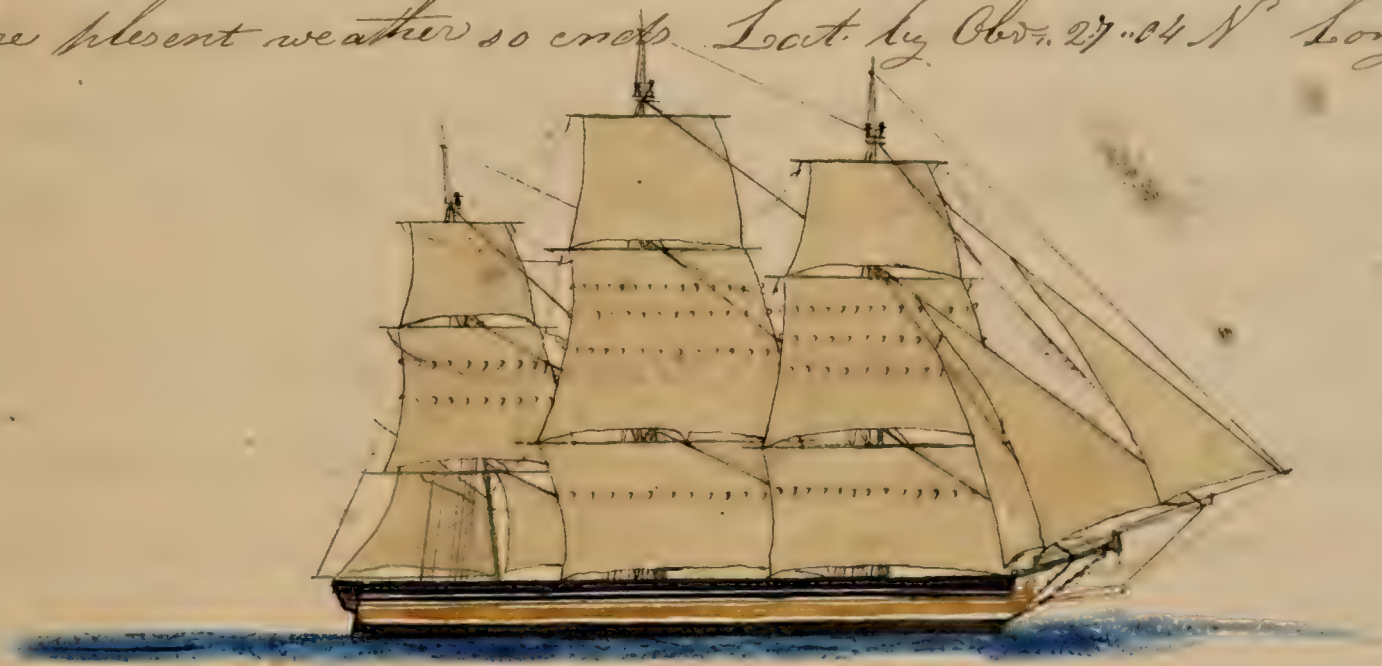 plesent weather so ends Lat. by Obs. 27..04 N Lon